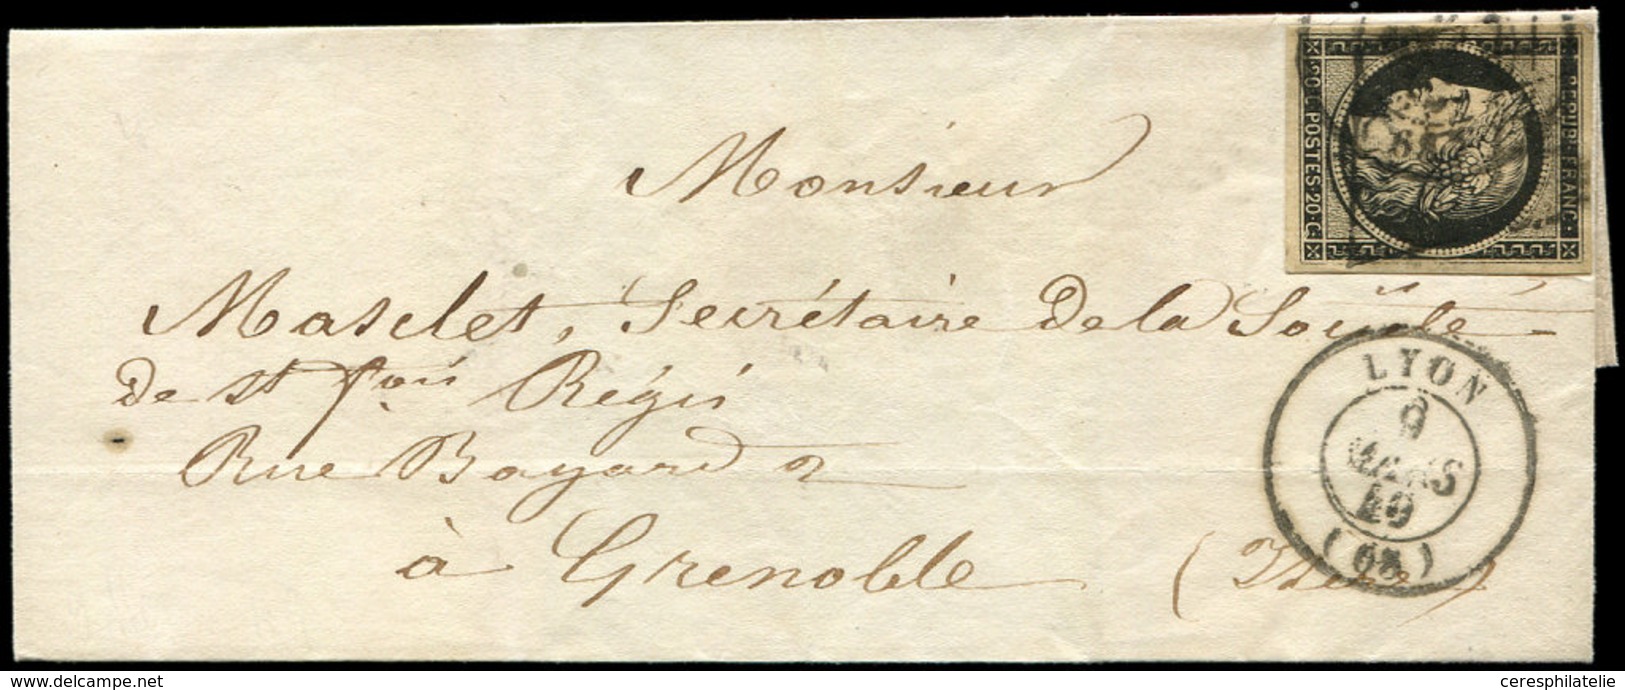 Monsieur
Masclet, Secrétaire de la Société
de st fois Régis
Rue Bayard 2
à Grenoble (Isère)
REPUB. FRANC.
20. C. POSTES. 20. C.
LYON
9
MARS
49
(68)
www.delcampe.net
ceresphilatelie